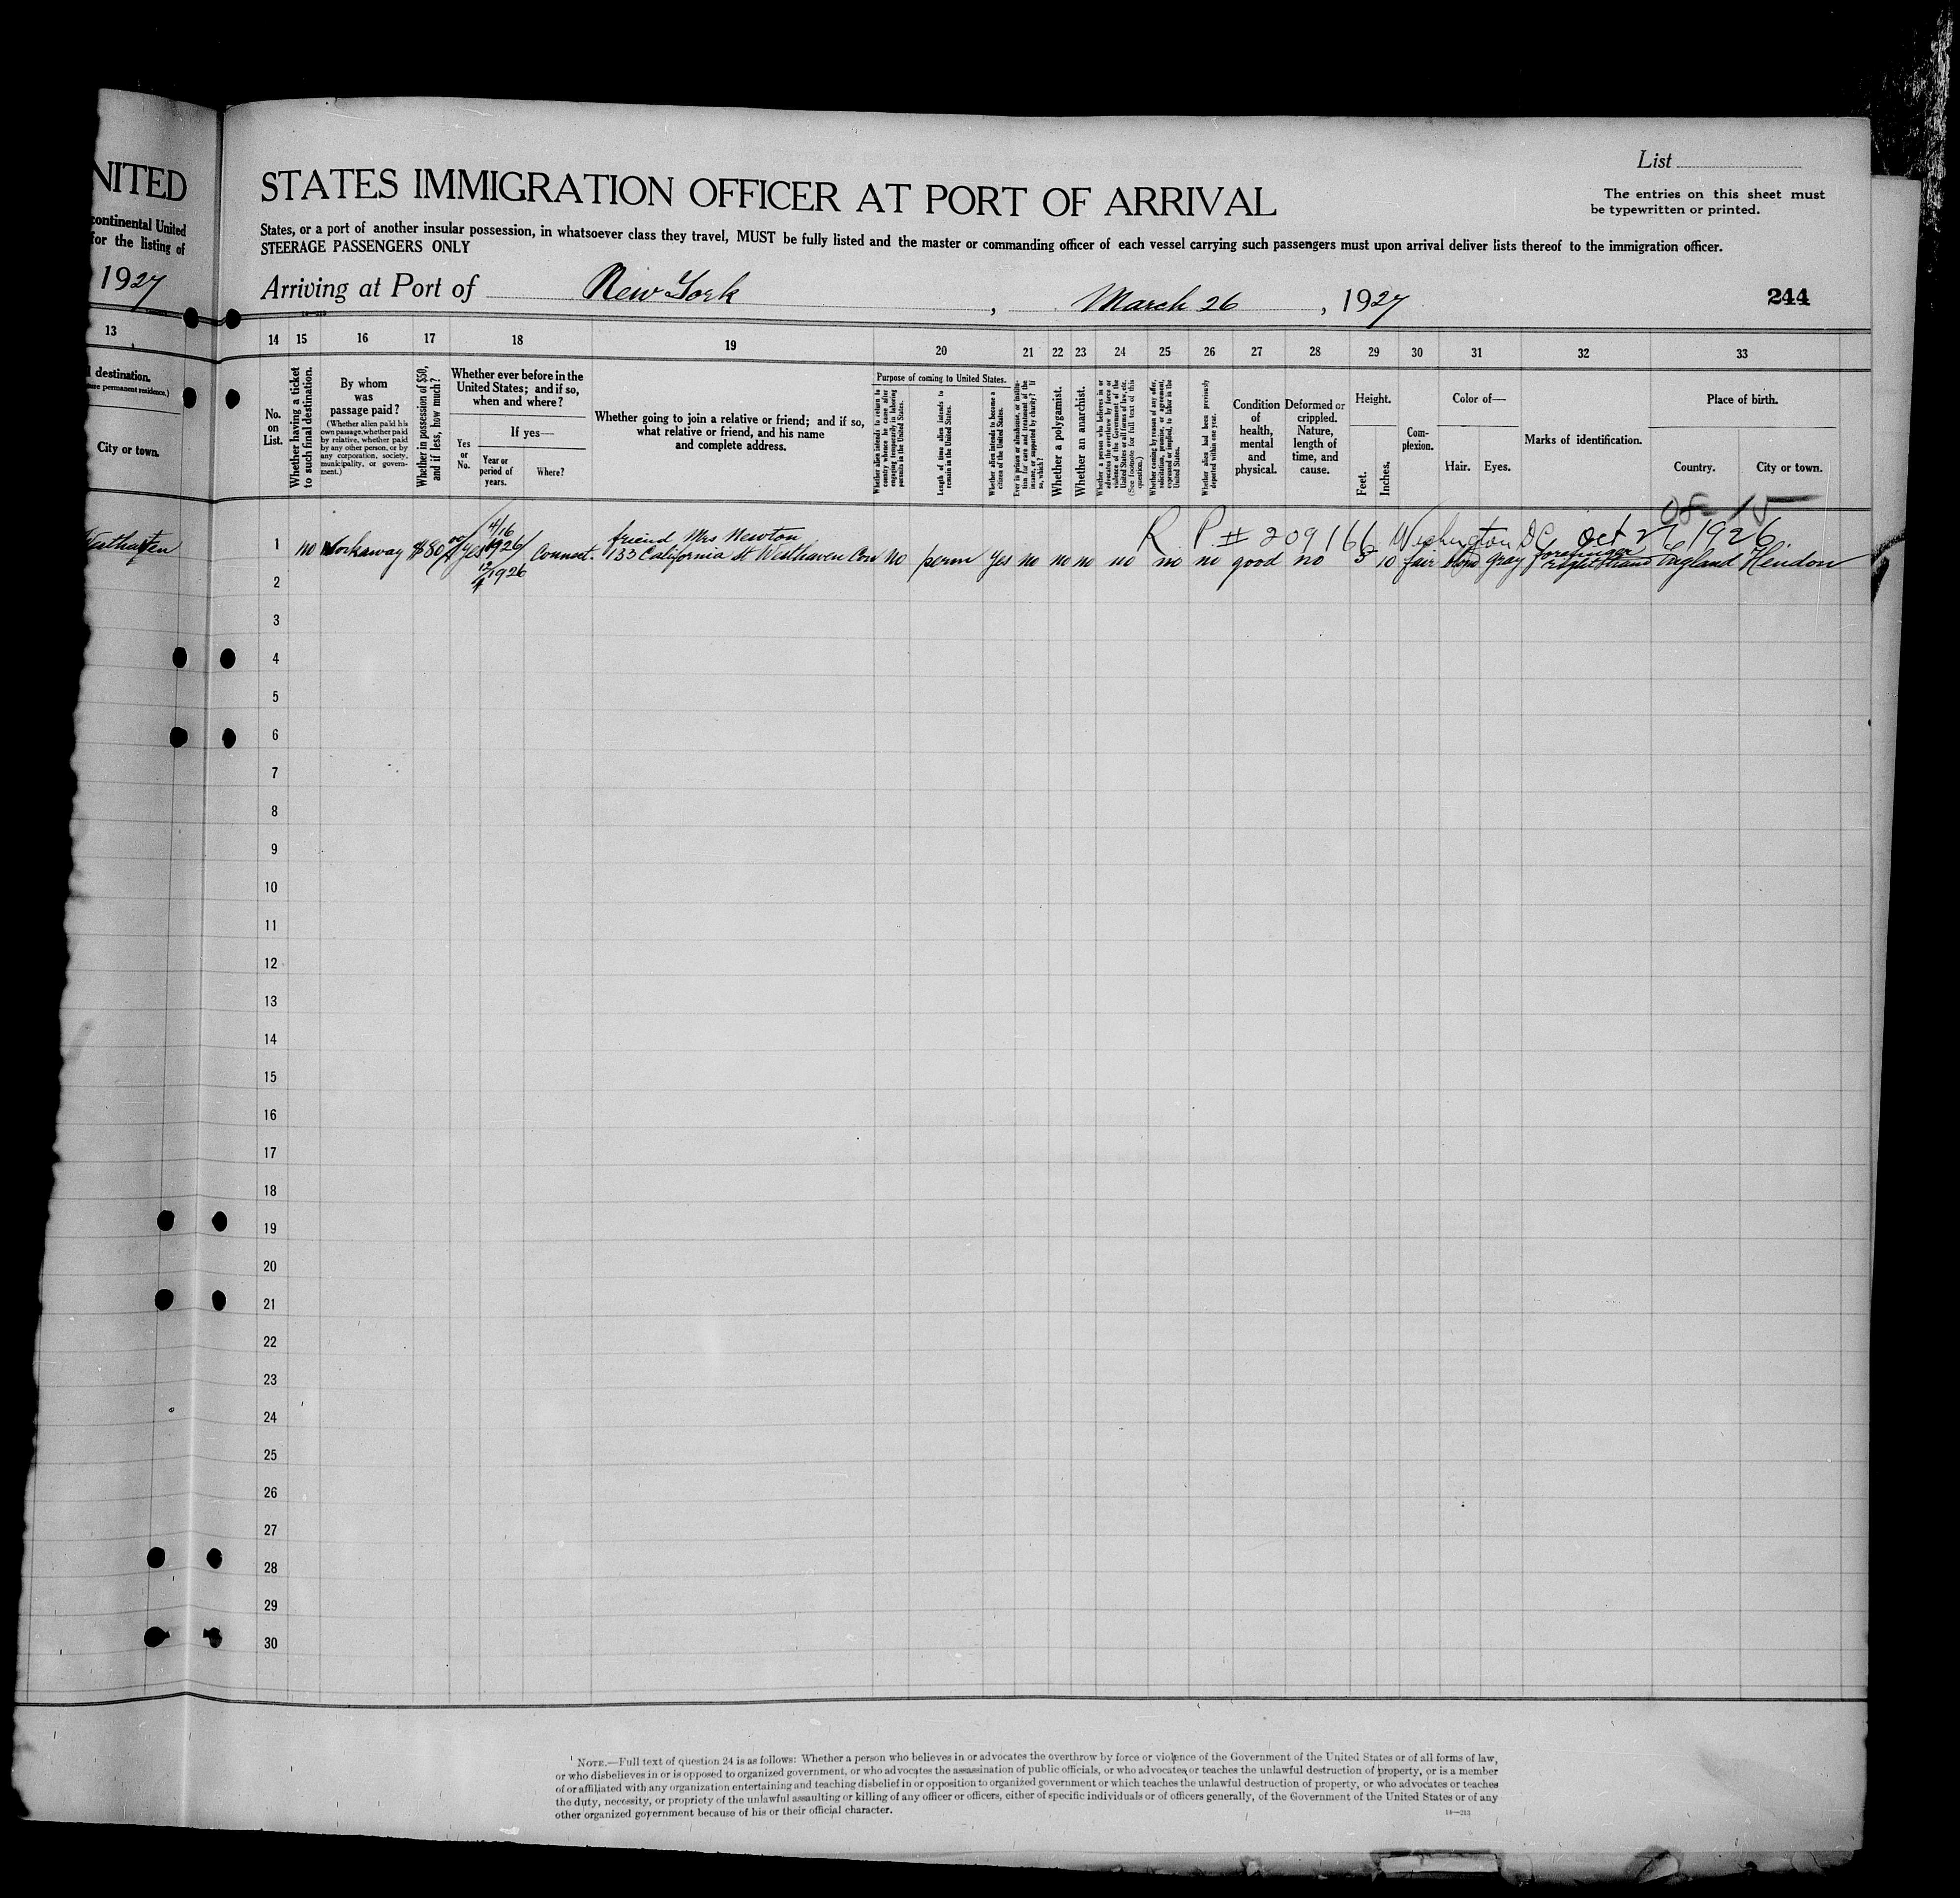 List
NITED
STATES IMMIGRATION OFFICER AT PORT OF ARRIVAL
The entries on this sheet must
be typewritten or printed.
continental United
for the listing of
States, or a port of another insular possession, in whatsoever class they travel, MUST be fully listed and the master or commanding officer of each vessel carrying such passengers must upon arrival deliver lists thereof to the immigration officer.
STEERAGE PASSENGERS ONLY
1927
Arriving at Port of New York, March 26, 1927
244
13 14 15 16 17 18 19 20 21 22 23 24 25 26 27 28 29 30 31 32 33
destination.
City or town.
No.
on
List.
Whether having a ticket
to such final destination.
By whom
was
passage paid?
(Whether alien paid his
own passage, whether paid
by relative, whether paid
by any other person, or by
any corporation, society,
municipality, or govern-
ment.)
Whether in possession of $50,
and if less, how much?
Whether ever before in the
United States; and if so,
when and where?
If yes—
Yes
or
No.
Year or
period of
years.
Where?
Whether going to join a relative or friend; and if so,
what relative or friend, and his name
and complete address.
Purpose of coming to United States.
Whether alien intends to return to
country whence he came after
engaging temporarily in laboring
pursuits in the United States.
Length of time alien intends to
remain in the United States.
Whether alien intends to become a
citizen of the United States.
Ever in prison or almshouse, or institu-
tion for care and treatment of the
insane, or supported by charity? If
so, which?
Whether a polygamist.
Whether an anarchist.
Whether a person who believes in or
advocates the overthrow by force or
violence of the Government of the
United States or all forms of law, etc.
(See footnote for full text of this
question.)
Whether coming by reason of any offer,
solicitation, promise, or agreement,
expressed or implied, to labor in the
United States.
Whether alien had been previously
deported within one year.
Condition
of
health,
mental
and
physical.
Deformed or
crippled.
Nature,
length of
time, and
cause.
Height.
Feet.
Inches.
Com-
plexion.
Color of—
Hair. Eyes.
Marks of identification.
Place of birth.
Country. City or town.
R. P. # 209166 Washington DC Oct 27, 1926
Westhaven
4/16
friend Mrs Newton
forefinger
1 no $80 Yes 1926 Connect. 133 California St Westhaven Con no perm Yes no no no no no no good no 5 10 fair blond gray right hand England Hendon
1926
2
3
4
5
6
7
8
9
10
11
12
13
14
15
16
17
18
19
20
21
22
23
24
25
26
27
28
29
30
NOTE.—Full text of question 24 is as follows: Whether a person who believes in or advocates the overthrow by force or violence of the Government of the United States or of all forms of law,
or who disbelieves in or is opposed to organized government, or who advocates the assassination of public officials, or who advocates or teaches the unlawful destruction of property, or is a member
of or affiliated with any organization entertaining and teaching disbelief in or opposition to organized government or which teaches the unlawful destruction of property, or who advocates or teaches
the duty, necessity, or propriety of the unlawful assaulting or killing of any officer or officers, either of specific individuals or of officers generally, of the Government of the United States or of any
other organized government because of his or their official character.
14—213